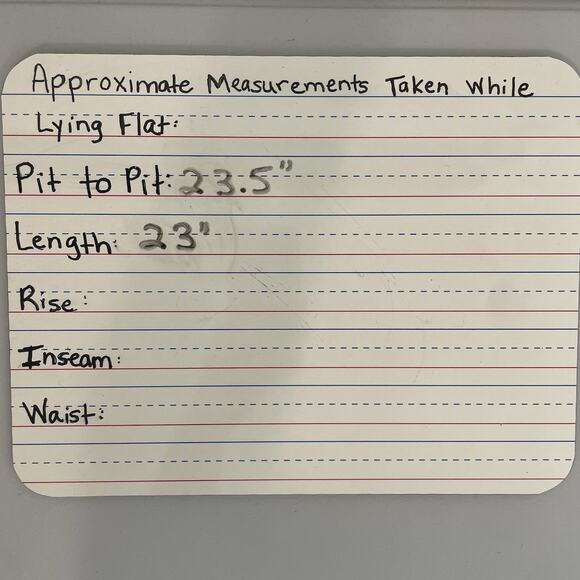 Approximate Measurements Taken While
Lying Flat:
Pit to Pit: 23.5"
Length: 23"
Rise:
Inseam:
Waist: